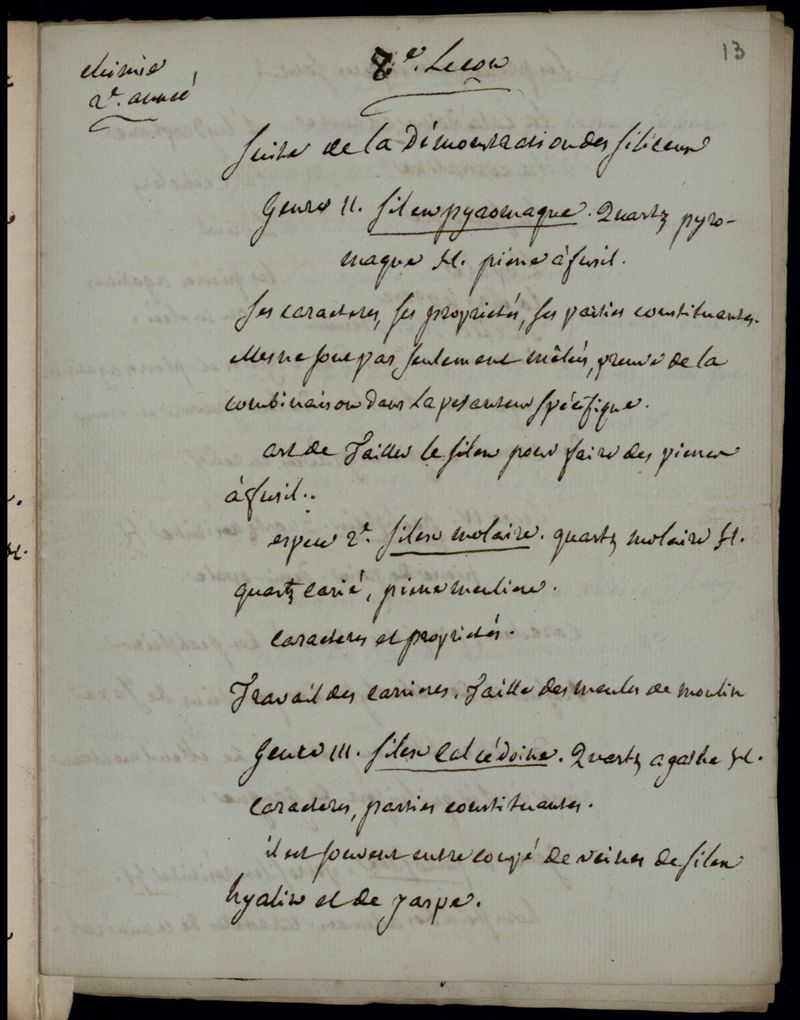 13
chimie
2e. année
8e. Lecon
Suite de la Démonstration des siliceux
Genre II. silex pyromaque. Quartz pyro-
maque H. pierre à fusil.
ses caracteres, ses proprietés, ses parties constituantes.
elles ne sont pas seulement mêlées, preuve de la
combinaison dans la pesanteur spécifique.
art de Tailler le silex pour faire des pierres
à fusil..
espece 2e. silex molaire. quartz molaire H.
quartz carié, pierre meuliere.
caracteres et proprietés.
Travail des carrieres, Taille des meules de moulin
Genre III. silex calcédoine. Quartz agathe H.
caracteres, parties constituantes.
il est souvent entrecoupé de veines de silex
hyalin et de jaspe.